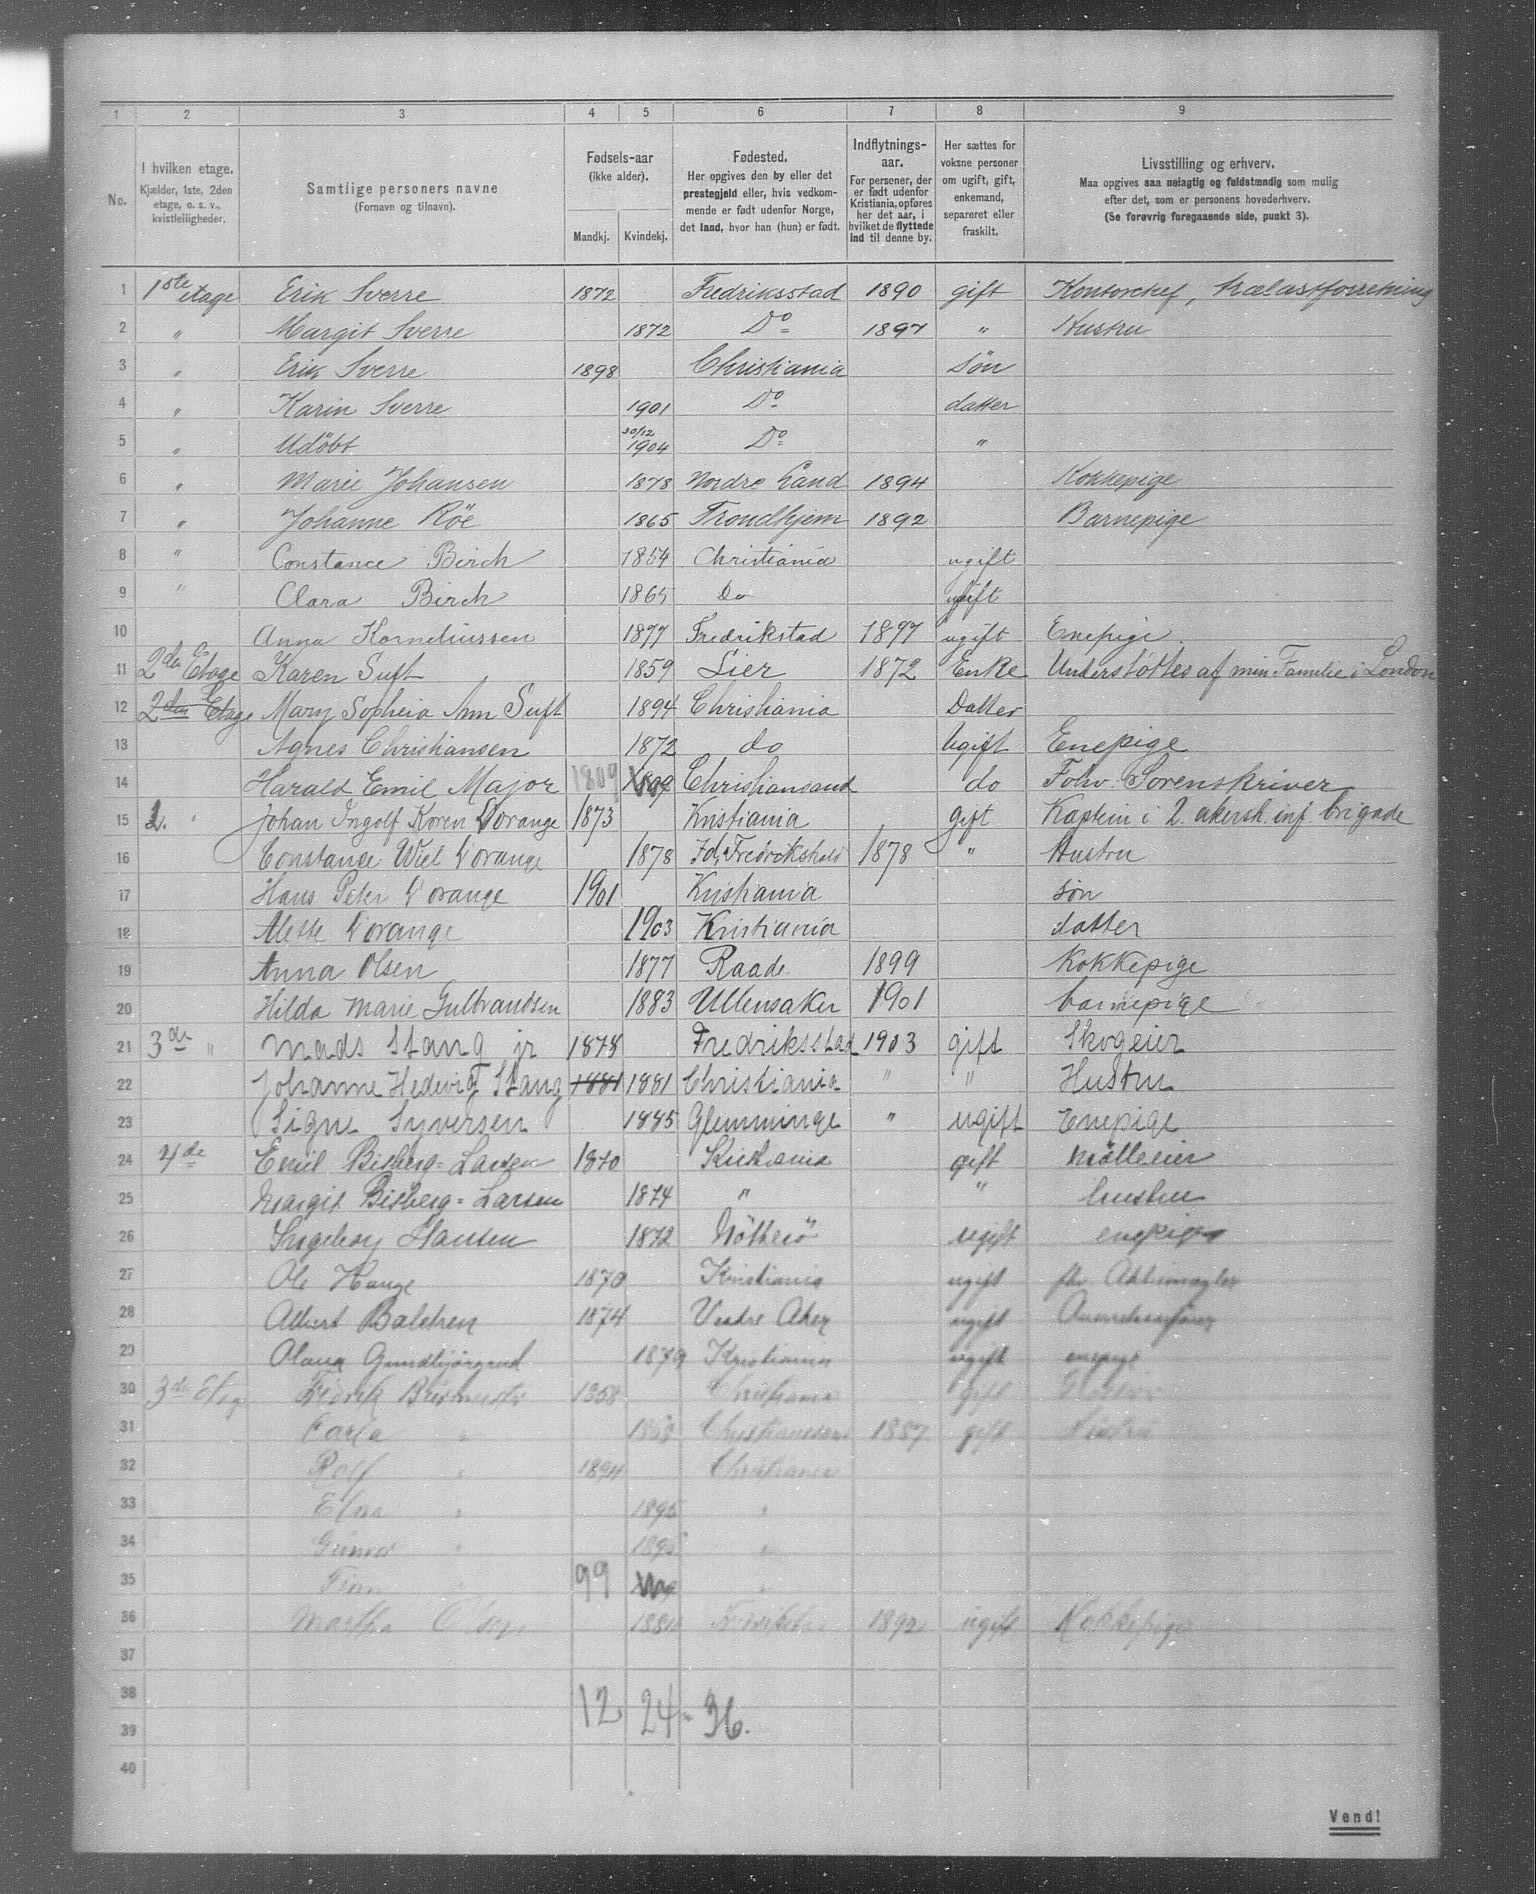 1 2 3 4 5 6 7 8 9
No.
I hvilken etage.
Kjælder, 1ste, 2den etage, o. s. v., kvistleiligheder.
Samtlige personers navne
(Fornavn og tilnavn).
Fødsels-aar
(ikke alder).
Mandkj. Kvindekj.
Fødested.
Her opgives den by eller det prestegjeld eller, hvis vedkommende er født udenfor Norge, det land, hvor han (hun) er født.
Indflytnings-aar.
For personer, der er født udenfor Kristiania, opføres her det aar, i hvilket de flyttede ind til denne by.
Her sættes for voksne personer om ugift, gift, enkemand, separeret eller fraskilt.
Livsstilling og erhverv.
Maa opgives saa nøiagtig og fuldstændig som mulig efter det, som er personens hovederhverv.
(Se forøvrig foregaaende side, punkt 3).
1 1ste etage Erik Sverre 1872 Fredriksstad 1890 gift Kontorchef, trælastforretning
2 " Margit Sverre 1872 Do 1897 " Hustru
3 " Erik Sverre 1898 Christiania søn
4 " Karin Sverre 1901 Do datter
5 " Udöbt 30/12 1904 Do "
6 " Marie Johansen 1878 Nordre Land 1894 Kokkepige
7 " Johanne Röe 1865 Trondhjem 1892 Barnepige
8 " Constance Birch 1854 Christiania ugift
9 " Clara Birch 1865 Do ugift
10 Anna Korneliussen 1877 Fredrikstad 1897 ugift Enepige.
11 2den Etage Karen Suft 1859 Lier 1872 Enke Understøttes af min Familie i London
12 2den Etage Mary Sopheia Ann Suft 1894 Christiania Datter
13 Agnes Christiansen 1872 do Ugift Enepige
14 Harald Emil Major 1809 Christiansand do Fohv. Sorenskriver
15 2. " Johan Ingolf Koren Worange 1873 Kristiania Gift Kaptein i 2. akersh. inf. brigade
16 Constance Wiel Worange 1878 Id, Fredrikshald 1878 " Hustru
17 Hans Peter Worange 1901 Kristiania søn
18 Alette Worange 1903 Kristiania datter
19 Anna Olsen 1877 Raade 1899 Kokkepige
20 Hilda Marie Gulbrandsen 1883 Ullensaker 1901 barnepige
21 3die " Mads Stang jr 1878 Fredriksstad 1903 gift Skogeier
22 Johanne Hedevig Stang 1881 1881 Christiania " " Hustru
23 Signe Syversen 1885 Glemminge " ugift Enepige
24 4de Emil Bisberg-Larsen 1870 Kristiania gift Mölleeier
25 Margit Bisberg-Larsen 1874 " " hustru
26 Ingeborg Hansen 1872 Nötterö ugift enepige
27 Ole Hauge 1870 Kristiania ugift
28 Albert Balchen 1874 Vestre Aker ugift
29 1879 Kristiania ugift enepige
30 3die Etag 1858 Christiania gift
31 Carla " 1863 1887 gift Hustru
32 Rolf " 1894 Christiania
33 " 1895 "
34 " "
35 " 99 "
36 Martha Olsen 1892 ugift Kokkepige
37
38 12 24 - 36.
39
40
Vend!